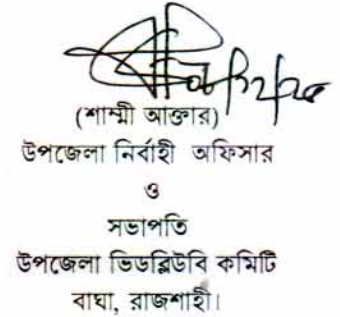 (শাম্মী আক্তার)
উপজেলা নির্বাহী অফিসার
ও
সভাপতি
উপজেলা ভিডব্লিউবি কমিটি
বাঘা, রাজশাহী।